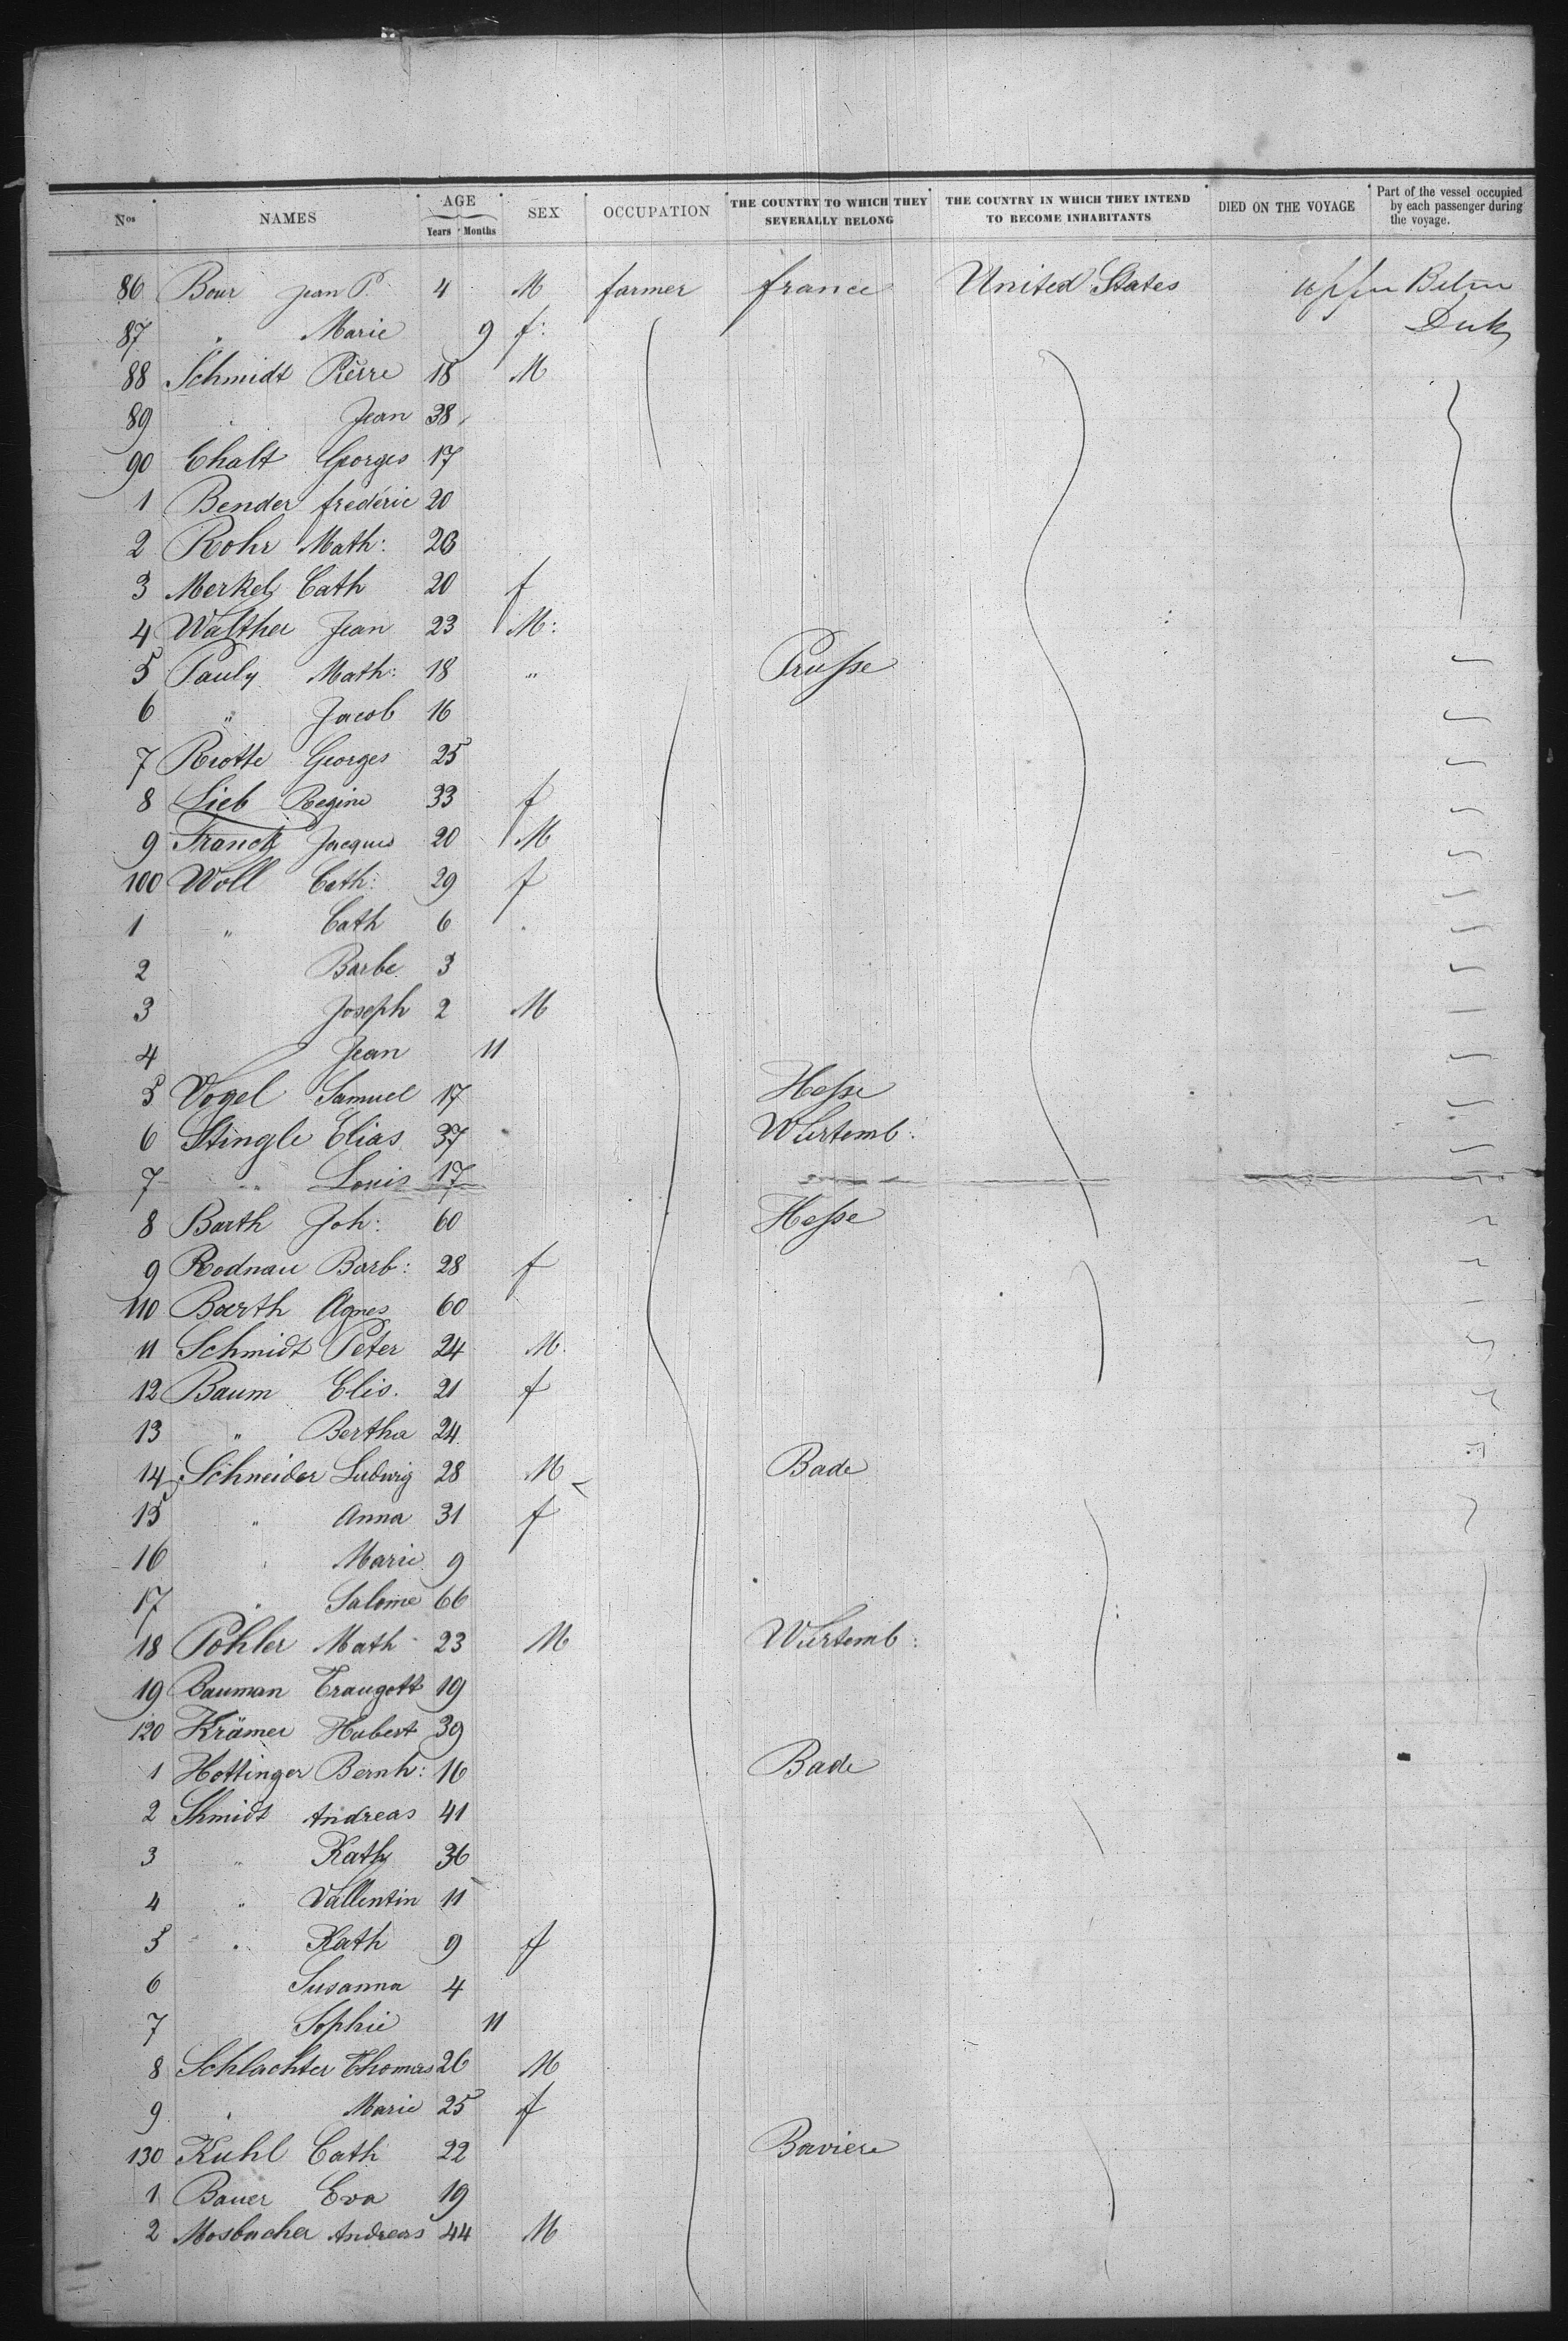 Nos NAMES AGE Years Months SEX OCCUPATION THE COUNTRY TO WHICH THEY SEVERALLY BELONG THE COUNTRY IN WHICH THEY INTEND TO BECOME INHABITANTS DIED ON THE VOYAGE Part of the vessel occupied by each passenger during the voyage.
86 Bour Jean P. 4 M farmer france United States
87 " Marie 9 f:
88 Schmidt Pierre 18 M
89 Jean 38
90 Ehalt Georges 17
1 Bender frederic 20
2 Rohr Math: 20
3 Merkel Cath 20 f
4 Walther Jean 23 M:
5 Pauly Math: 18 " Prusse
6 " Jacob 16
7 Riotte Georges 25
8 Lieb Regine 33 f
9 Franck Jacques 20 M
100 Woll Cath: 29 f
1 " Cath 6 "
2 Barbe 3
3 Joseph 2 M
4 Jean 11
5 Vogel Samuel 17 Hesse
6 Stingle Elias 37 Würtemb:
7 " Louis 17
8 Barth Joh: 60 Hesse
9 Rodnau Barb: 28 f
110 Baerth Agnes 60
11 Schmidt Peter 24 M.
12 Baum Elis. 21 f
13 " Bertha 24
14 Schneider Ludwig 28 M Bade
15 " Anna 31 f
16 " Marie 9
17 " Salome 66
18 Pohler Math 23 M Würtemb:
19 Bauman Traugott 19
120 Krämer Hubert 39
1 Hottinger Bernh: 16 Bade
2 Shmidt Andreas 41
3 " Kath 36
4 " Vallentin 11
5 " Kath 9 f
6 Susanna 4
7 Sophie 11
8 Schlachter Thomas 26 M
9 " Marie 25 f
130 Kuhl Cath 22 Baviere
1 Bauer Eva 19
2 Mosbacher Andreas 44 M